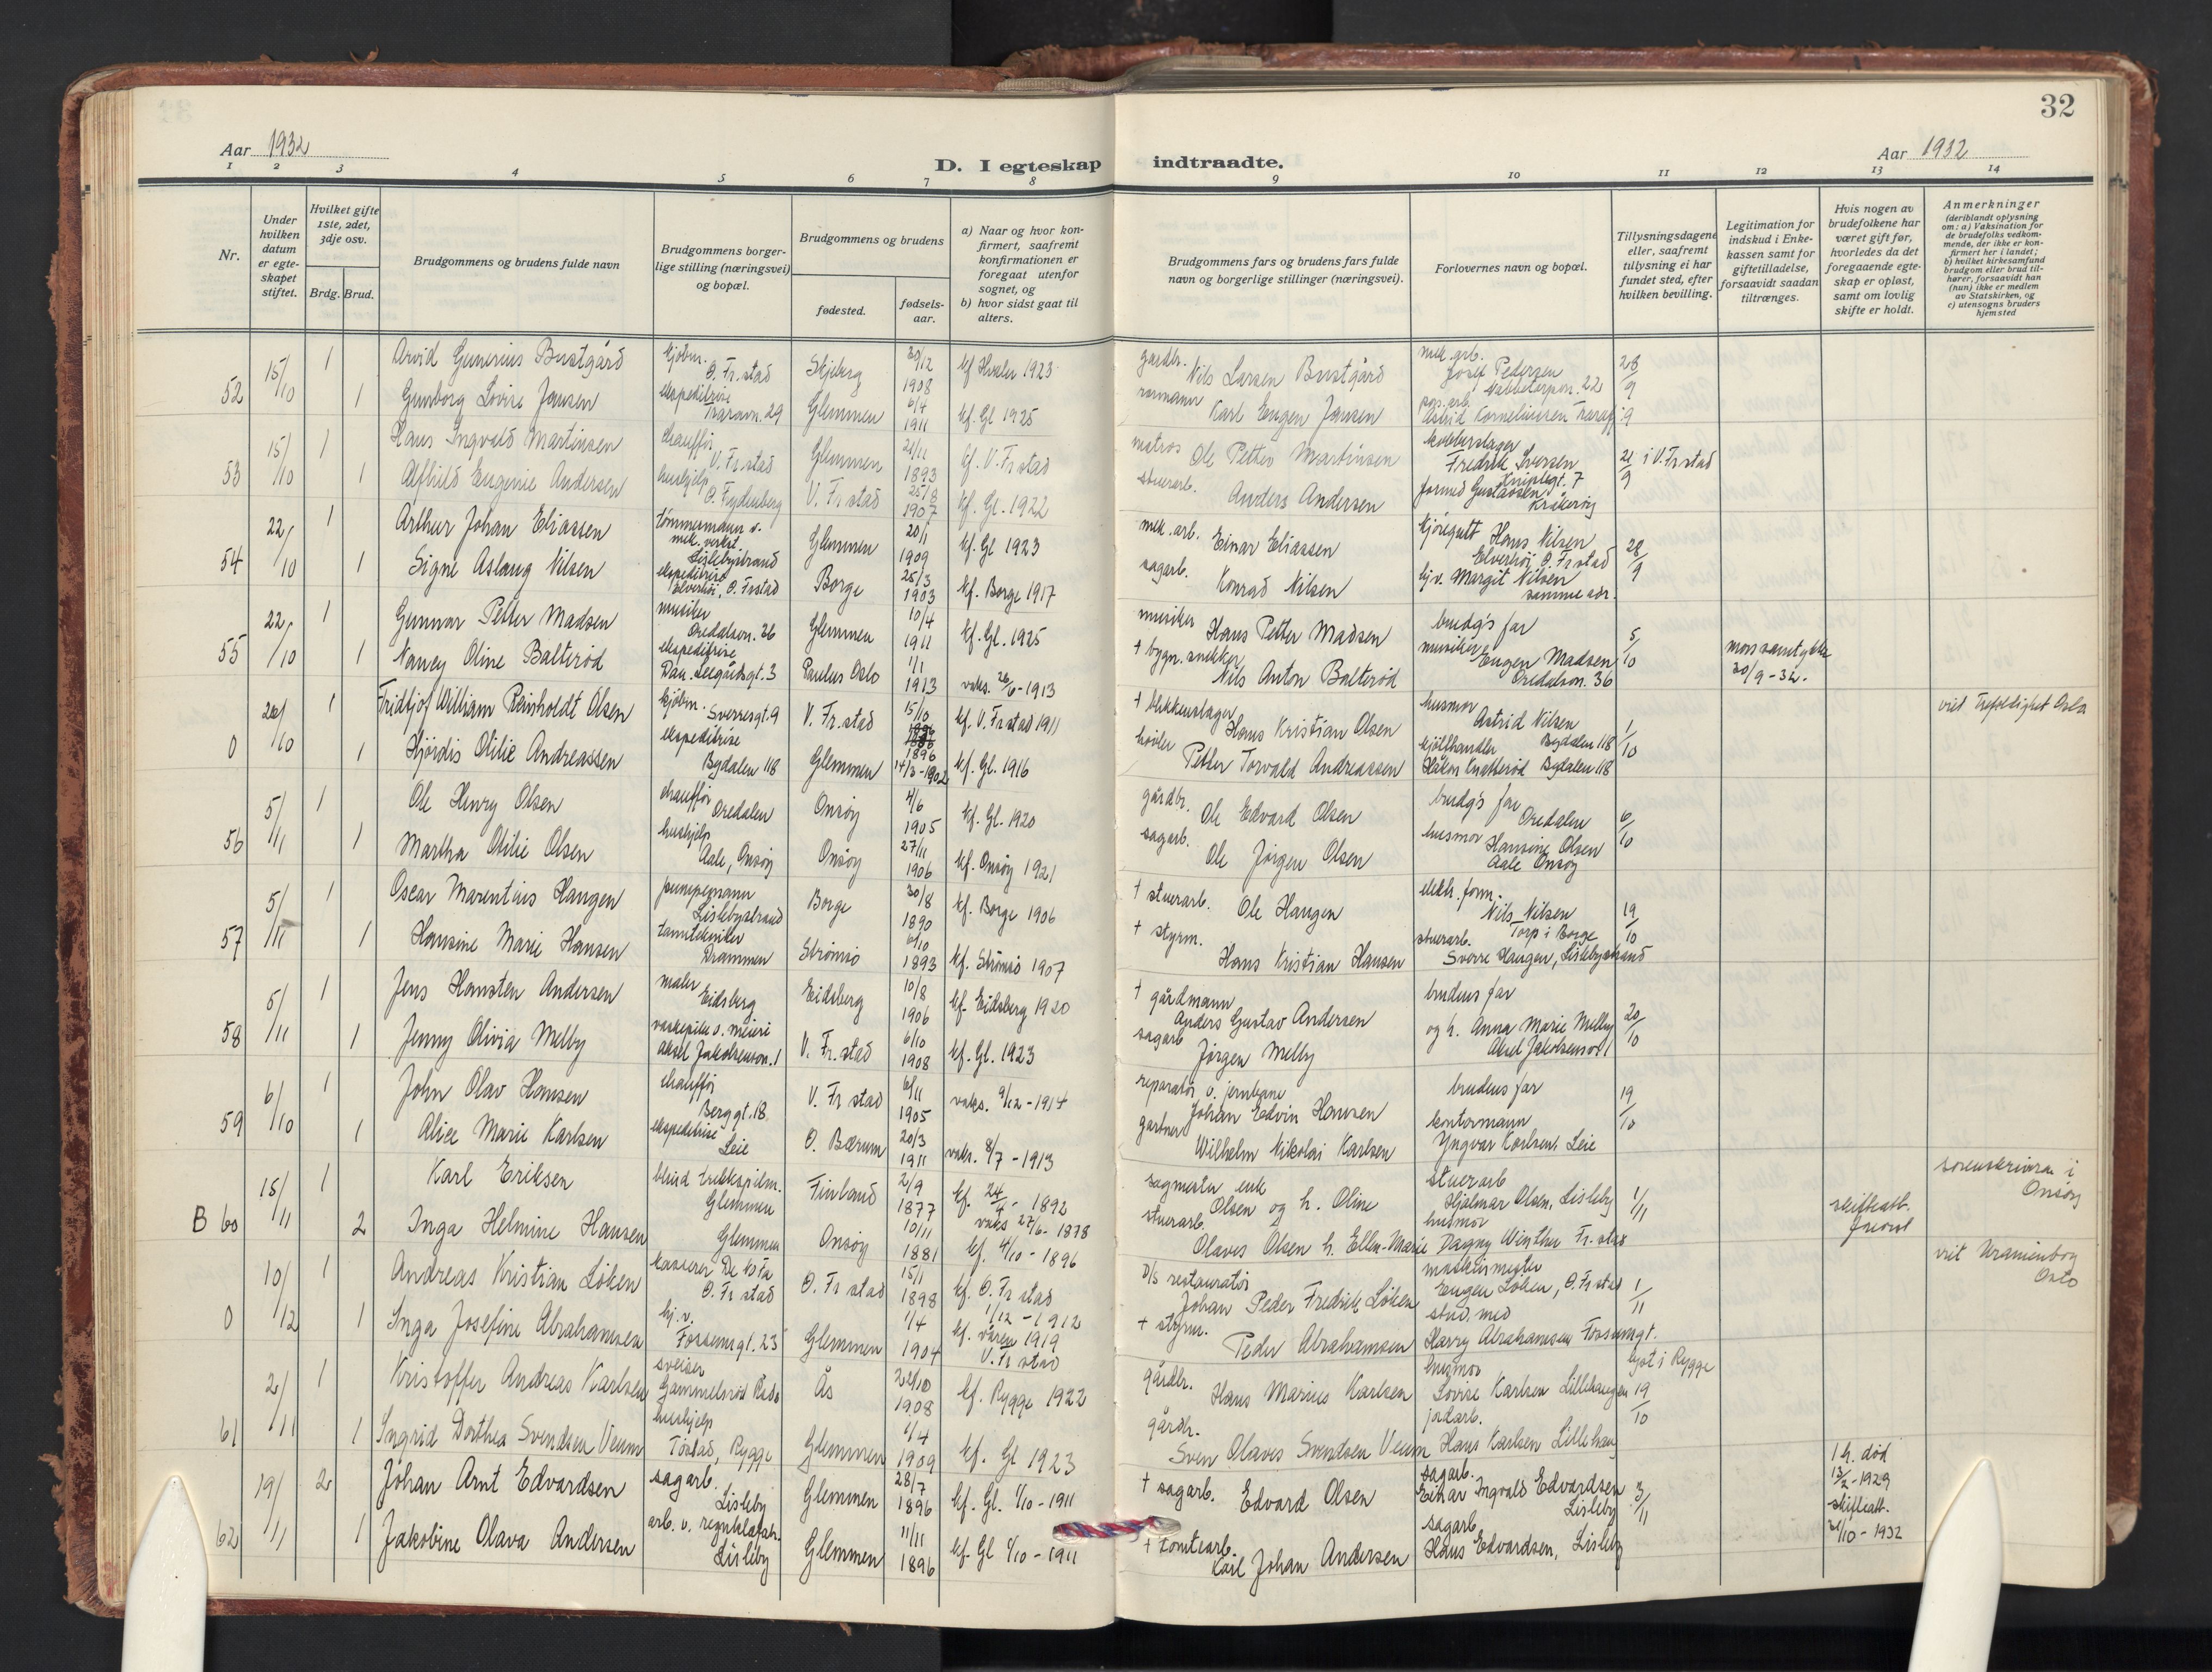 32
Aar 1932
D. I egteskap indtraadte.
Aar 1932
1 2 3 4 5 6 7 8 9 10 11 12 13 14
Nr.
Under hvilken datum er egteskapet stiftet.
Hvilket gifte 1ste, 2det, 3dje osv.
Brdg. Brud.
Brudgommens og brudens fulde navn
Brudgommens borgerlige stilling (næringsvei) og bopæl.
Brudgommens og brudens
fødested.
fødselsaar.
a) Naar og hvor konfirmert, saafremt konfirmationen er foregaat utenfor sognet, og
b) hvor sidst gaat til alters.
Brudgommens fars og brudens fars fulde navn og borgerlige stillinger (næringsvei).
Forlovernes navn og bopæl.
Tillysningsdagene eller, saafremt tillysning ei har fundet sted, efter hvilken bevilling.
Legitimation for indskud i Enkekassen samt for giftetilladelse, forsaavidt saadan tiltrænges.
Hvis nogen av brudefolkene har været gift før, hvorledes da det foregaaende egteskap er opløst, samt om lovlig skifte er holdt.
Anmerkninger (deriblandt oplysning om: a) Vaksination for de brudefolks vedkommende, der ikke er konfirmert her i landet; b) hvilket kirkesamfund brudgom eller brud tilhører, forsaavidt han (hun) ikke er medlem av Statskirken, og c) utensogns bruders hjemsted
52 15/10 1 Arvid Gunerius Bustgård kjøbm. Ø. Fr.stad Skjeberg 30/12 1908 kf Hvaler 1923 gårdbr. Nils Larsen Bustgård mek. arb. Josef Pedersen 22 28/9
1 Gunborg Lovise Jansen ekspeditrise Traravn. 29 Glemmen 6/4 1911 kf. Gl 1925 Karl Eugen Jansen Astrid Korneliussen
53 15/10 1 Hans Ingvald Martinsen chauffør V. Fr.stad Glemmen 21/11 1893 kf. V. Fr stad matros Ole Petter Martinsen kobberslager Fredrik Iversen 7 21/9 i V. Fr stad
1 Alfhild Eugenie Andersen hushjelp Ø. Fydenberg V. Fr stad 25/8 1907 kf. Gl. 1922 stuerarb. Anders Andersen formed Gustavsen Kråkerøy
54 22/10 1 Arthur Johan Eliassen tømmermann v. mek. verkst. Lislebystrand Glemmen 20/1 1909 kf. Gl 1923 mek. arb. Einar Eliassen kjøregutt Hans Nilsen Elverhøi, Ø. Fr stad 28/9
1 Signe Aslaug Nilsen ekspeditrise Elverhøi, Ø. Fr stad Borge 25/3 1903 kf. Borge 1917 sagarb. Konrad Nilsen hj.v. Margit Nilsen samme adr.
55 22/10 1 Gunnar Petter Madsen musiker Oredalsn. 26 Glemmen 10/4 1911 kf. Gl. 1925 musiker Hans Petter Madsen brudg's far 5/10
1 Nancy Oline Balterød ekspeditrise Dan. Leegårdsgt. 3 Paulus Oslo 1/1 1913 vaks. 26/6-1913 + bygn. snekker Nils Anton Balterød musiker Eugen Madsen Oredalsn. 36 mors samtykke 30/9-32.
0 10 1 Fridtjof William Reinholdt Olsen kjøbm. Sverresgt. 9 V. Fr.stad 15/10 1896 kf. V. Fr stad 1911 + blikkenslager Hans Kristian Olsen husmor Astrid Nilsen Bydalen 118 1/10 viet Trefoldighet Oslo
1 Hjørdis Otilie Andreassen ekspeditrise Bydalen 118 Glemmen 14/3-1902 kf. Gl. 1916 høvler Petter Torvald Andreassen Håkon Knatterød Bydalen 118
56 5/11 1 Ole Henry Olsen chauffør Oredalen Onsøy 4/6 1905 kf. Gl. 1920 gårdbr. Ole Edvard Olsen brudg's far Oredalen 6/10
1 Martha Otilie Olsen hushjelp Aale, Onsøy Onsøy 27/11 1906 kf. Onsøy 1921 sagarb. Ole Jørgen Olsen husmor Hansine Olsen Aale Onsøy
57 5/11 1 Oscar Marentius Haugen pumpemann Lislebystrand Borge 30/8 1890 kf. Borge 1906 + stuerarb. Ole Haugen elektr. form. Nils Nilsen Torp i Borge 19/10
1 Hansine Marie Hansen tanntekniker Drammen Strømsø 6/10 1893 kf. Strømsø 1907 + styrm. Hans Kristian Hansen stuerarb. Sverre Haugen, Lislebystrand
58 5/11 1 Jens Hansten Andersen maler Eidsberg Eidsberg 10/8 1906 kf. Eidsberg 1920 + gårdmann Anders Gustav Andersen brudens far 20/10
1 Jenny Olivia Melby vaskepike v. meieri Aksel Jakobsensn. 1 V. Fr.stad 6/10 1908 kf. Gl. 1923 sagarb Jørgen Melby og h. Anna Marie Melby Aksel Jakobsensn 1
59 6/10 1 John Olav Hansen chauffør Berggt. 18 V. Fr stad 6/11 1905 vaks. 9/12-1914 reparatør v. jernbane Johan Edvin Hansen brudens far 19/10
1 Alice Marie Karlsen ekspeditrise Leie Ø. Bærum 20/3 1911 vaks. 8/7-1913 gartner Wilhelm Nikolai Karlsen kontormann Yngvar Karlsen, Leie
B 60 15/11 1 Karl Eriksen blind trekkspillm. Glemmen Finland 2/9 1877 kf. 24/4-1892 sagmester enk Olsen og h. Oline stuerarb Hjalmar Olsen, Lisleby 1/11 sorenskriveren i Onsøy
2 Inga Helmine Hansen Glemmen Onsøy 10/11 1881 vaks 27/6-1878 kf. 4/10-1896 stuerarb. Olaves Olsen h. Ellen-Marie husmor Dagny Winther Fr.stad skifteatt.
0 10/12 1 Andreas Kristian Løken kasserer Ø. Fr stad Ø. Fr stad 15/1 1898 kf. Ø. Fr stad 1/12-1912 D/s restauratør Johan Peder Fredrik Løken maskinmester Eugen Løken, Ø. Fr stad 1/11 viet Uranienborg Oslo
1 Inga Josefine Abrahamsen hj.v. Fossumsgt. 23 Glemmen 1/4 1904 kf. våren 1919 V. Fr stad + styrm. Peder Abrahamsen stud. med Harry Abrahamsen Fossumsgt.
61 2/11 1 Kristoffer Andreas Karlsen sveiser Gammelsrød Råde Ås 22/10 1908 kf. Rygge 1922 gårdbr. Hans Marius Karlsen husmor Lovise Karlsen Lillehaugen lyst i Rygge 19/10
1 Ingrid Dorthea Svendsen Veum hushjelp Rygge Glemmen 1/4 1909 kf. Gl 1923 gårdbr. Sven Olaves Svendsen Veum jordarb. Hans Karlsen Lillehaug
62 19/11 2 Johan Arnt Edvardsen sagarb. Lisleby Glemmen 28/7 1896 kf. Gl. 1/10-1911 + sagarb. Edvard Olsen sagarb. Einar Ingvald Edvardsen Lisleby 3/11 1 h. død 13/2-1929 skifteatt. 31/10-1932
1 Jakobine Olava Andersen Lisleby Glemmen 11/11 1896 kf. Gl 1/10-1911 + tomtearb. Karl Johan Andersen sagarb Hans Edvardsen, Lisleby